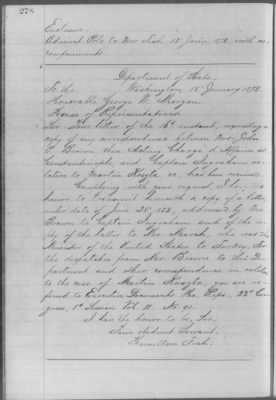 278
Enclosure:
Admiral Polo to Mr Fish 15 Jan'y, 1878, with ac-
companiments.
Department of State,
To the Washington 18 January 1878.
Honorable George W. Morgan
House of Representatives.
Sir: Your letter of the 16th instant, requesting a
copy of any correspondence between Mr. John
P. Brown, then Acting Chargé d'Affaires at
Constantinople and Captain Ingraham re-
lative to Martin Koszta &c, has been received.
Complying with your request, I have the
honor to transmit herewith a copy of a letter
under date of June 28, 1853, addressed by Mr.
Brown to Captain Ingraham and of the re-
ply of the latter to Mr. Marsh, who was the
Minister of the United States to Turkey. For
the despatches from Mr. Brown to this De-
partment and other correspondence in relation
to the case of Martin Koszta, you are re-
ferred to Executive Documents Ho. Reps. 33d Con-
gress, 1st Session Vol. 11 No. 91.
I have the honor to be, Sir,
Your obedient Servant,
Hamilton Fish.